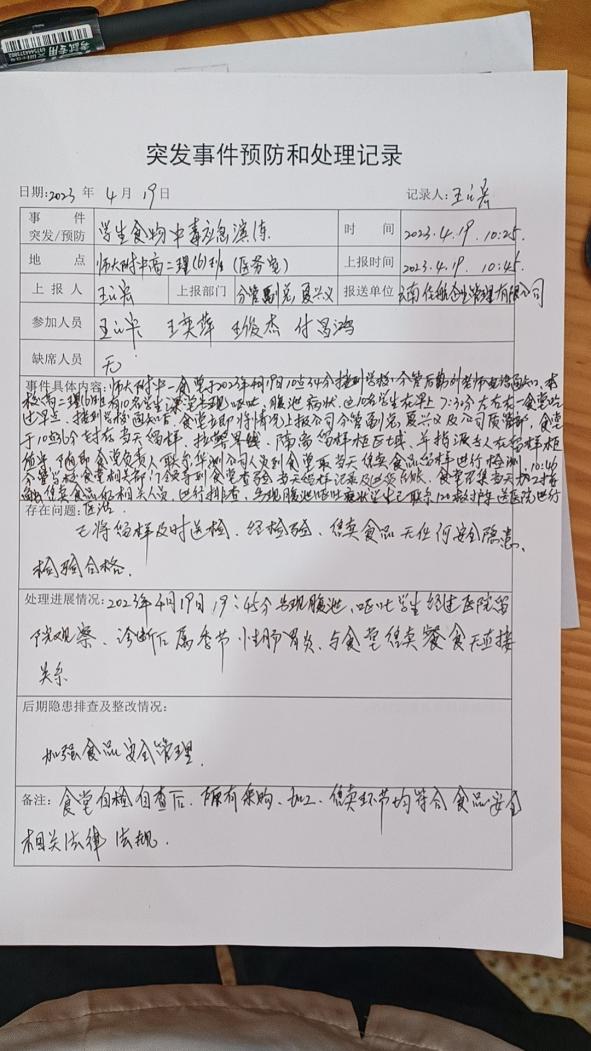 考试专用
突发事件预防和处理记录
日期:2023 年 4 月 19 日 记录人:王
事件 突发/预防 学生食物中毒应急演练 时间 2023.4.19. 10:25.
地点 师大附中高二理(6)班 (医务室) 上报时间 2023.4.19. 10:45.
上报人 王 上报部门 分管副总 夏兴义 报送单位 云南佳航 管理有限公司
参加人员 王 王奕萍 王俊杰 付昌鸿
缺席人员 无
事件具体内容: 师大附中一食堂于2023年4月19日10点34分接到学校分管后勤 老师电话通知, 本
校高二理(6)班有10名学生 课堂出现呕吐、腹泄病状, 这10名学生在早上7:30分左右在一食堂吃
过早点. 接到学校通知后, 食堂立即将情况上报公司分管副总夏兴义及公司质管部. 食堂
于10点36分封存当天留样, 拉警界线, 隔离留样柜区域, 并指派专人在留样柜
随即食堂负责人联系华测公司人员到食堂取当天售卖食品留样进行检测, 10:40
分 学校食堂相关部门领导到食堂查验当天留样记录及进货台账, 食堂召集当天加工接
触售卖食品的相关人员, 进行排查, 出现腹泄呕吐症状学生已联系120救护车送医院进行
医治.
存在问题:
已将留样及时送检. 经检验, 售卖食品无任何安全隐患,
检验合格.
处理进展情况: 2023年4月19日19:45分 出现腹泄、呕吐学生经过医院留
院观察、诊断后属季节性肠胃炎, 与食堂售卖餐食无直接
关系
后期隐患排查及整改情况:
加强食品安全管理.
备注: 食堂自检自查后. 所有采购、加工、售卖环节均符合食品安全
相关法律法规.